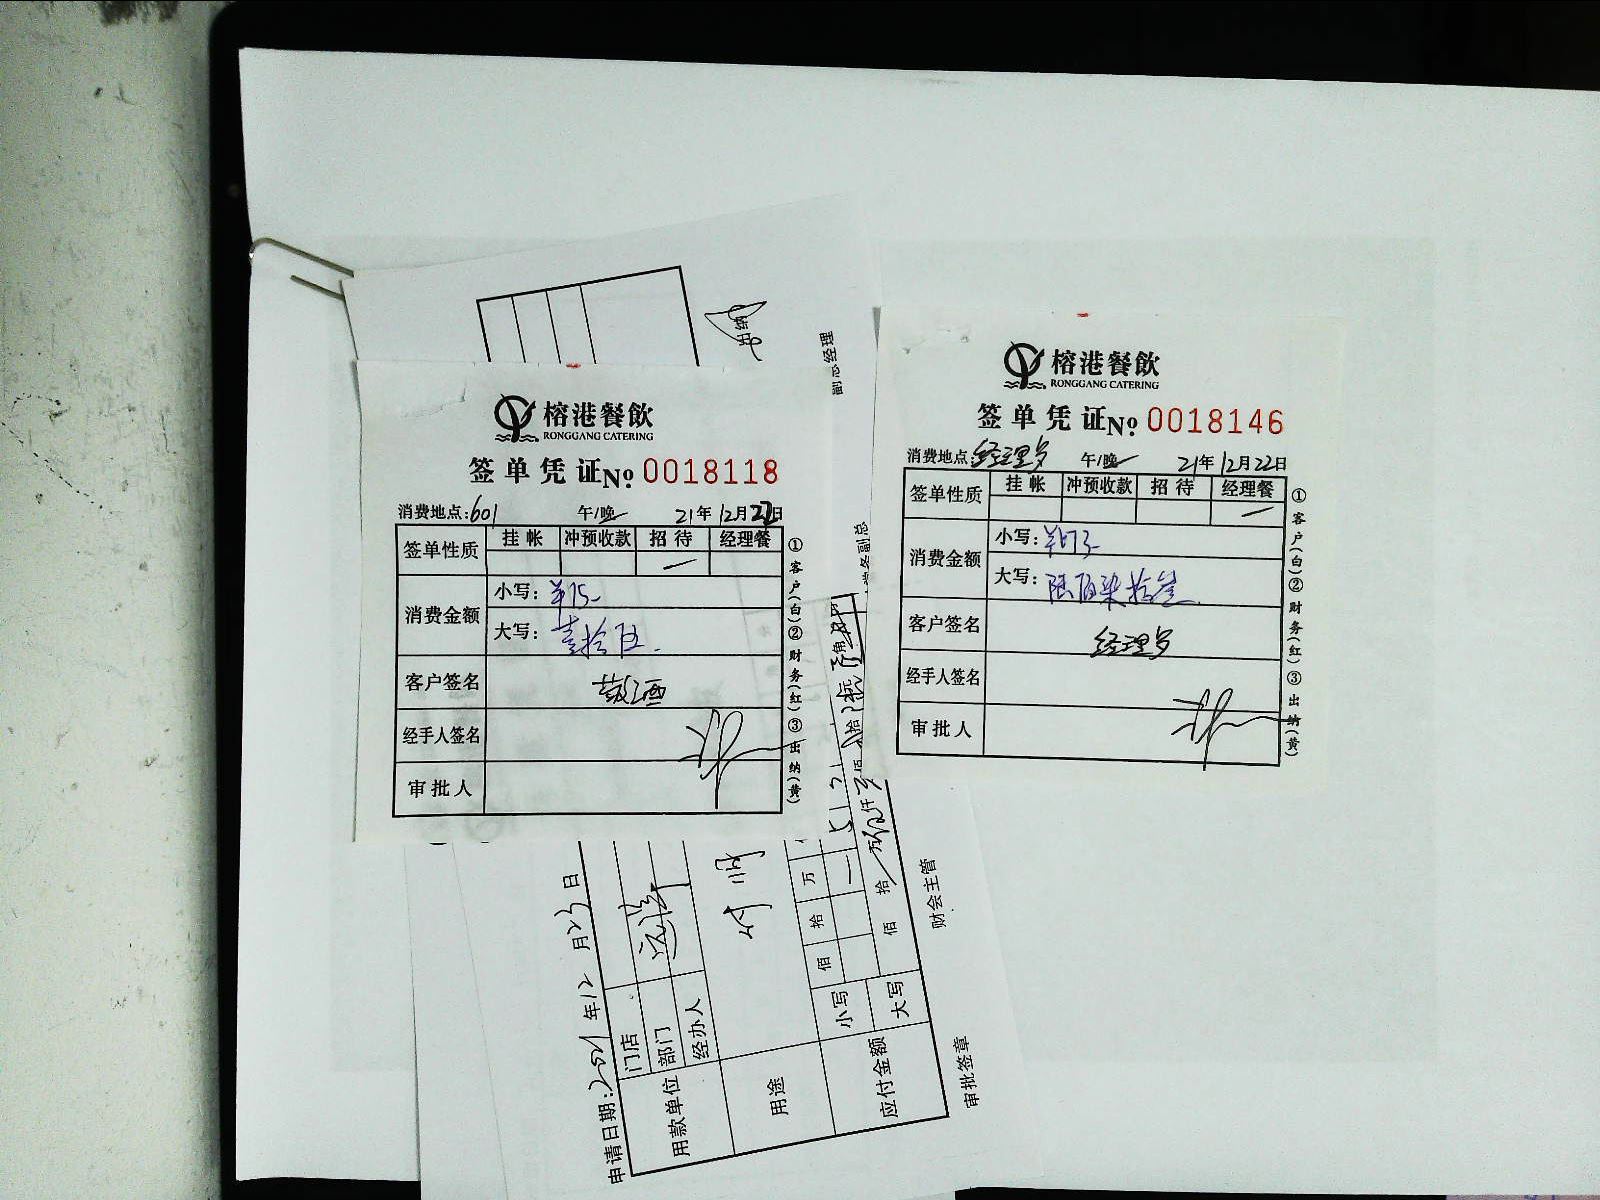 榕港餐飲
RONGGANG CATERING
签单凭证No. 0018118
消费地点:601 午/晚 21年12月22日
签单性质 挂帐 冲预收款 招待 经理餐
消费金额
小写:¥15-
大写:壹拾伍
客户签名 敬酒
经手人签名
审批人
①客户(白)②财务(红)③出纳(黄)
榕港餐飲
RONGGANG CATERING
签单凭证No. 0018146
消费地点:经理 午/晚 21年12月22日
签单性质 挂帐 冲预收款 招待 经理餐
消费金额
小写:
大写:陆佰柒拾叁
客户签名 经理
经手人签名
审批人
①客户(白)②财务(红)③出纳(黄)
出纳
副总经理
常务副总
申请日期:2021年12月23日
用款单位
门店
部门
经办人
用途
应付金额
小写 佰 拾 万
大写 佰 拾 万 仟 佰 拾
财会主管
审批签章